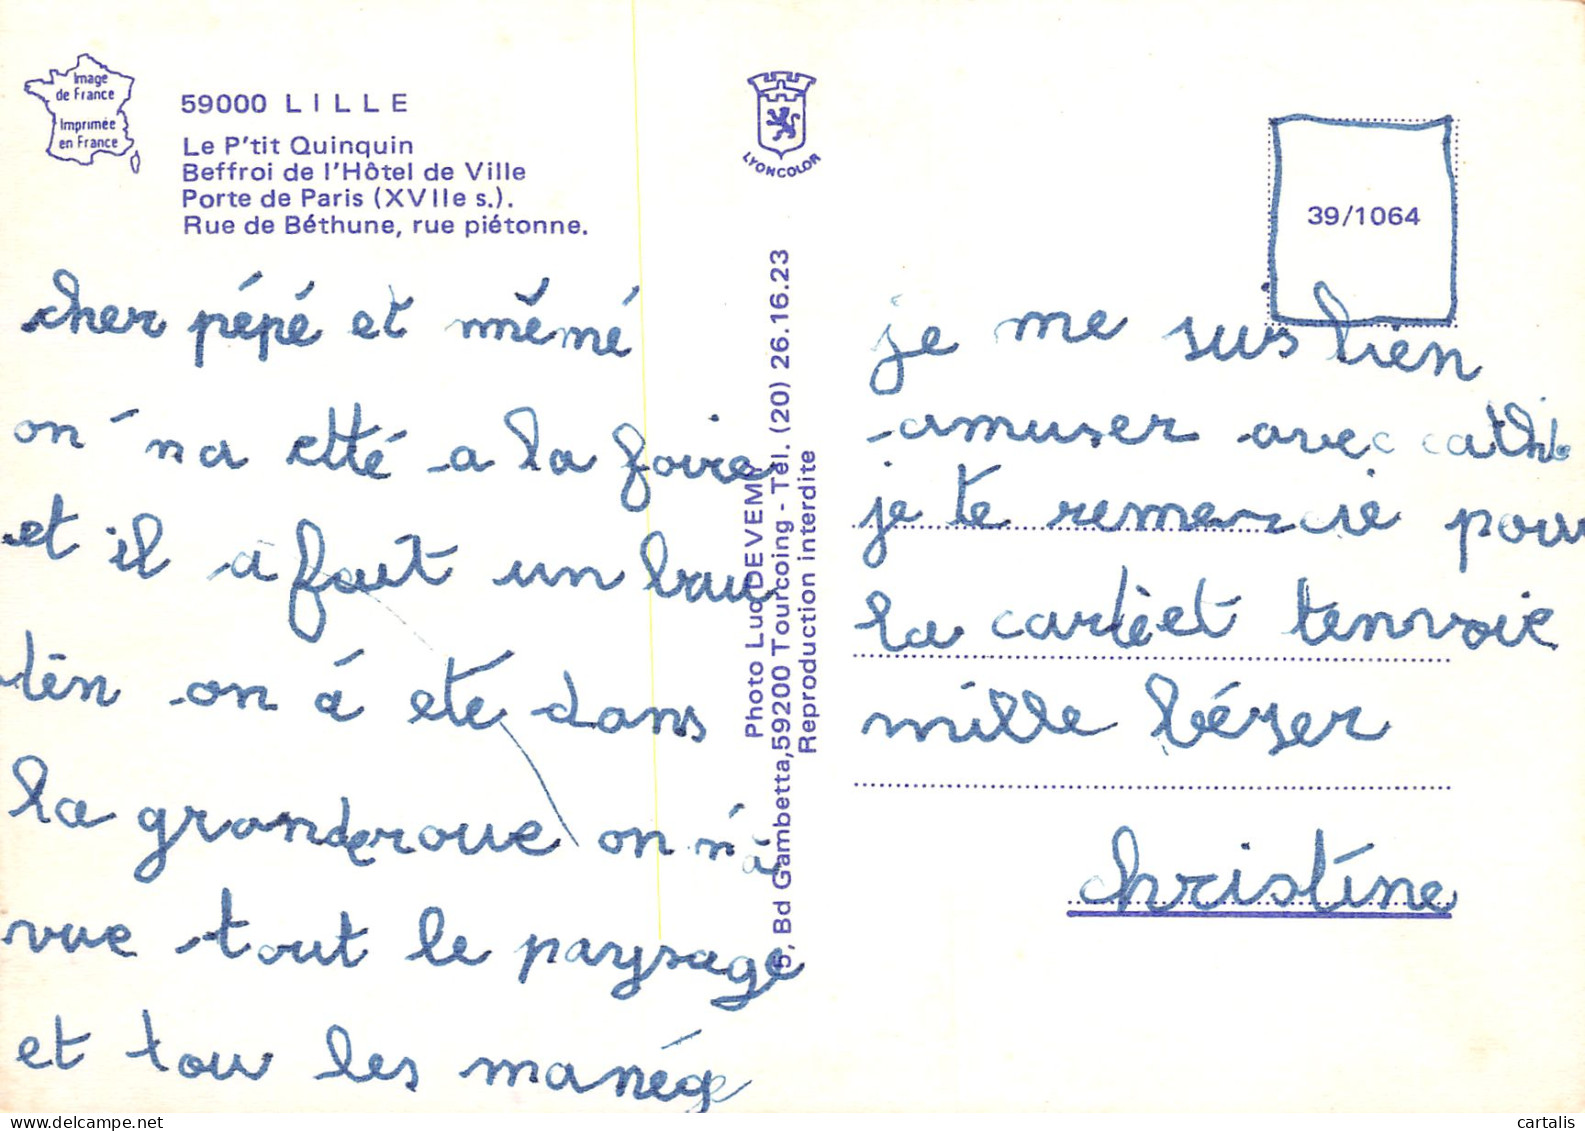 Image
de France
Imprimée
en France
59000 LILLE
Le P'tit Quinquin
Beffroi de l'Hôtel de Ville
Porte de Paris (XVIIe s.).
Rue de Béthune, rue piétonne.
cher pépé et mémé
on na etté a la foire
et il a fait un bau
tén on á eté dans
la granderoue on n'a
vue tout le paysage
et tou les manége
LYONCOLOR
Photo Luc DEVEMY
5, Bd Gambetta, 59200 Tourcoing - Tél. (20) 26.16.23
Reproduction interdite
39/1064
je me suis bien
amuser avec cathi
je te remercie pour
la carte et tenvoie
mille bézer
christine
cartalis
delcampe.net